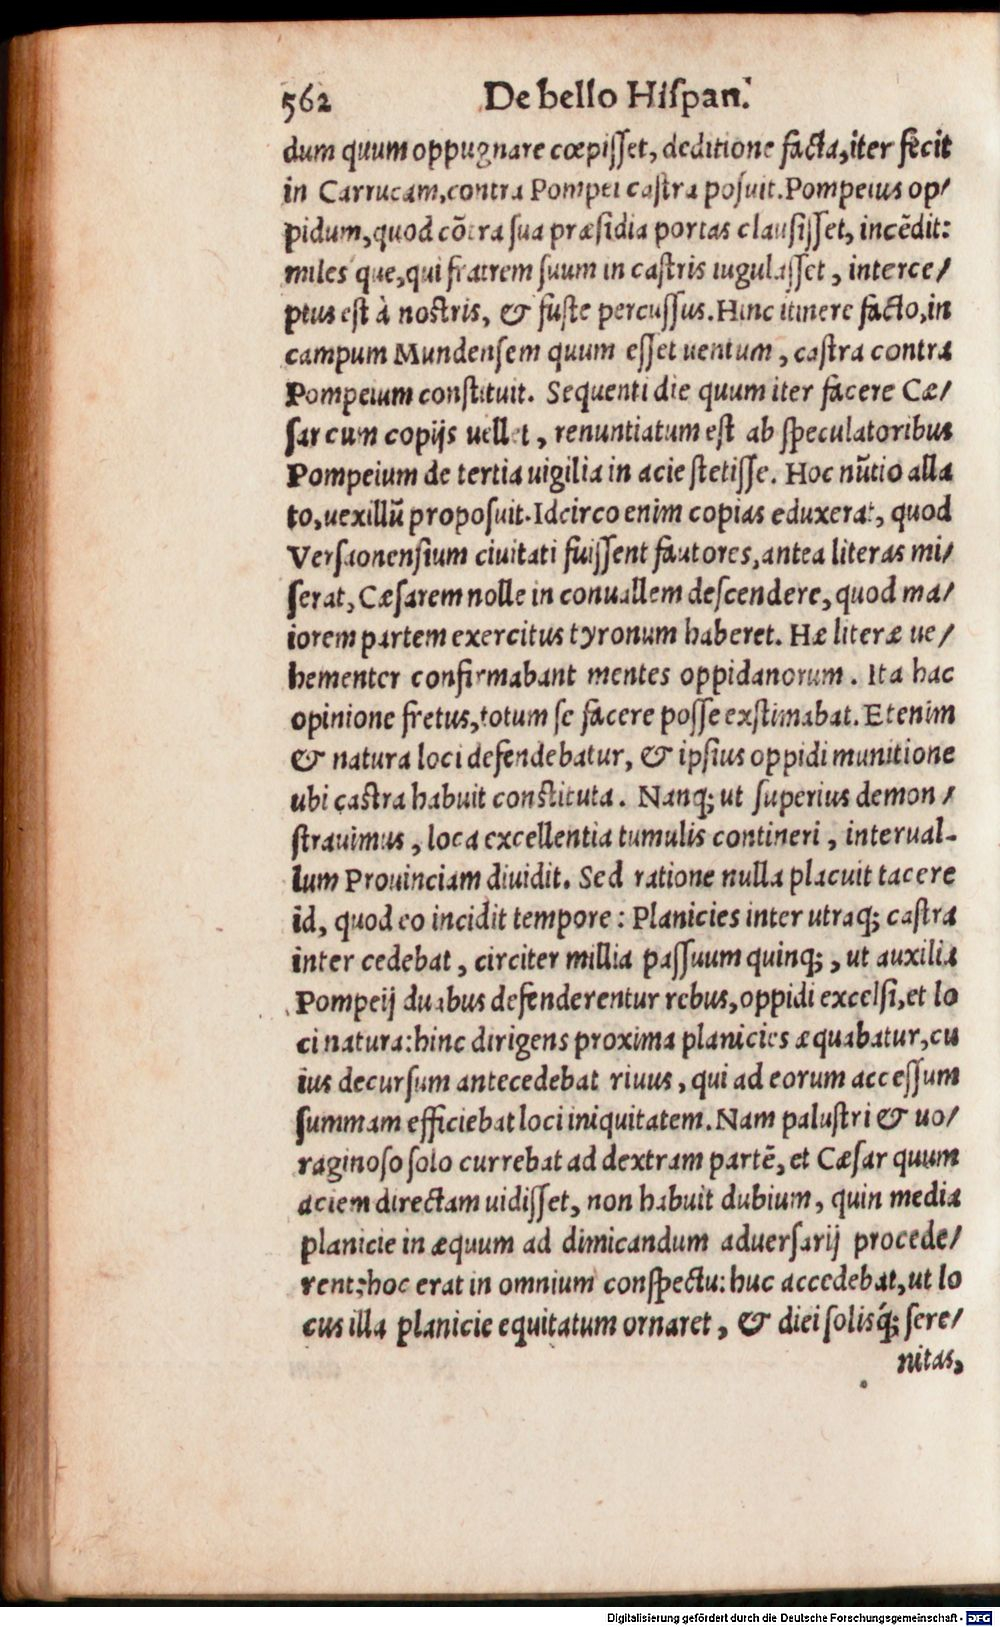 562 De bello Hiſpan.
dum quum oppugnare cœpiſſet, deditione facta, iter fecit
in Carrucam, contra Pompei caſtra poſuit. Pompeius op/
pidum, quod cõtra ſua præſidia portas clauſiſſet, incẽdit:
miles que, qui fratrem ſuum in caſtris iugulaſſet, interce/
ptus eſt à noſtris, & fuſte percuſſus. Hinc itinere facto, in
campum Mundenſem quum eſſet uentum, caſtra contra
Pompeium conſtituit. Sequenti die quum iter facere Cæ/
ſar cum copijs uellet, renuntiatum eſt ab ſpeculatoribus
Pompeium de tertia uigilia in acie ſtetiſſe. Hoc nũtio alla
to, uexillũ propoſuit. Idcirco enim copias eduxerat, quod
Verſaonenſium ciuitati fuiſſent fautores, antea literas mi/
ſerat, Cæſarem nolle in conuallem deſcendere, quod ma/
iorem partem exercitus tyronum haberet. Hæ literæ ue/
hementer confirmabant mentes oppidanorum. Ita hac
opinione fretus, totum ſe facere poſſe exſtimabat. Etenim
& natura loci defendebatur, & ipſius oppidi munitione
ubi caſtra habuit conſtituta. Nanq; ut ſuperius demon/
ſtrauimus, loca excellentia tumulis contineri, interual-
lum Prouinciam diuidit. Sed ratione nulla placuit tacere
id, quod eo incidit tempore: Planicies inter utraq; caſtra
inter cedebat, circiter millia paſſuum quinq;, ut auxilia
Pompeij duabus defenderentur rebus, oppidi excelſi, et lo
ci natura: hinc dirigens proxima planicies æquabatur, cu
ius decurſum antecedebat riuus, qui ad eorum acceſſum
ſummam efficiebat loci iniquitatem. Nam paluſtri & uo/
raginoſo ſolo currebat ad dextram partẽ, et Cæſar quum
aciem directam uidiſſet, non habuit dubium, quin media
planicie in æquum ad dimicandum aduerſarij procede/
rent; hoc erat in omnium conſpectu: huc accedebat, ut lo
cus illa planicie equitatum ornaret, & diei ſolisq́; ſere/
nitas,
Digitalisierung gefördert durch die Deutsche Forschungsgemeinschaft - DFG